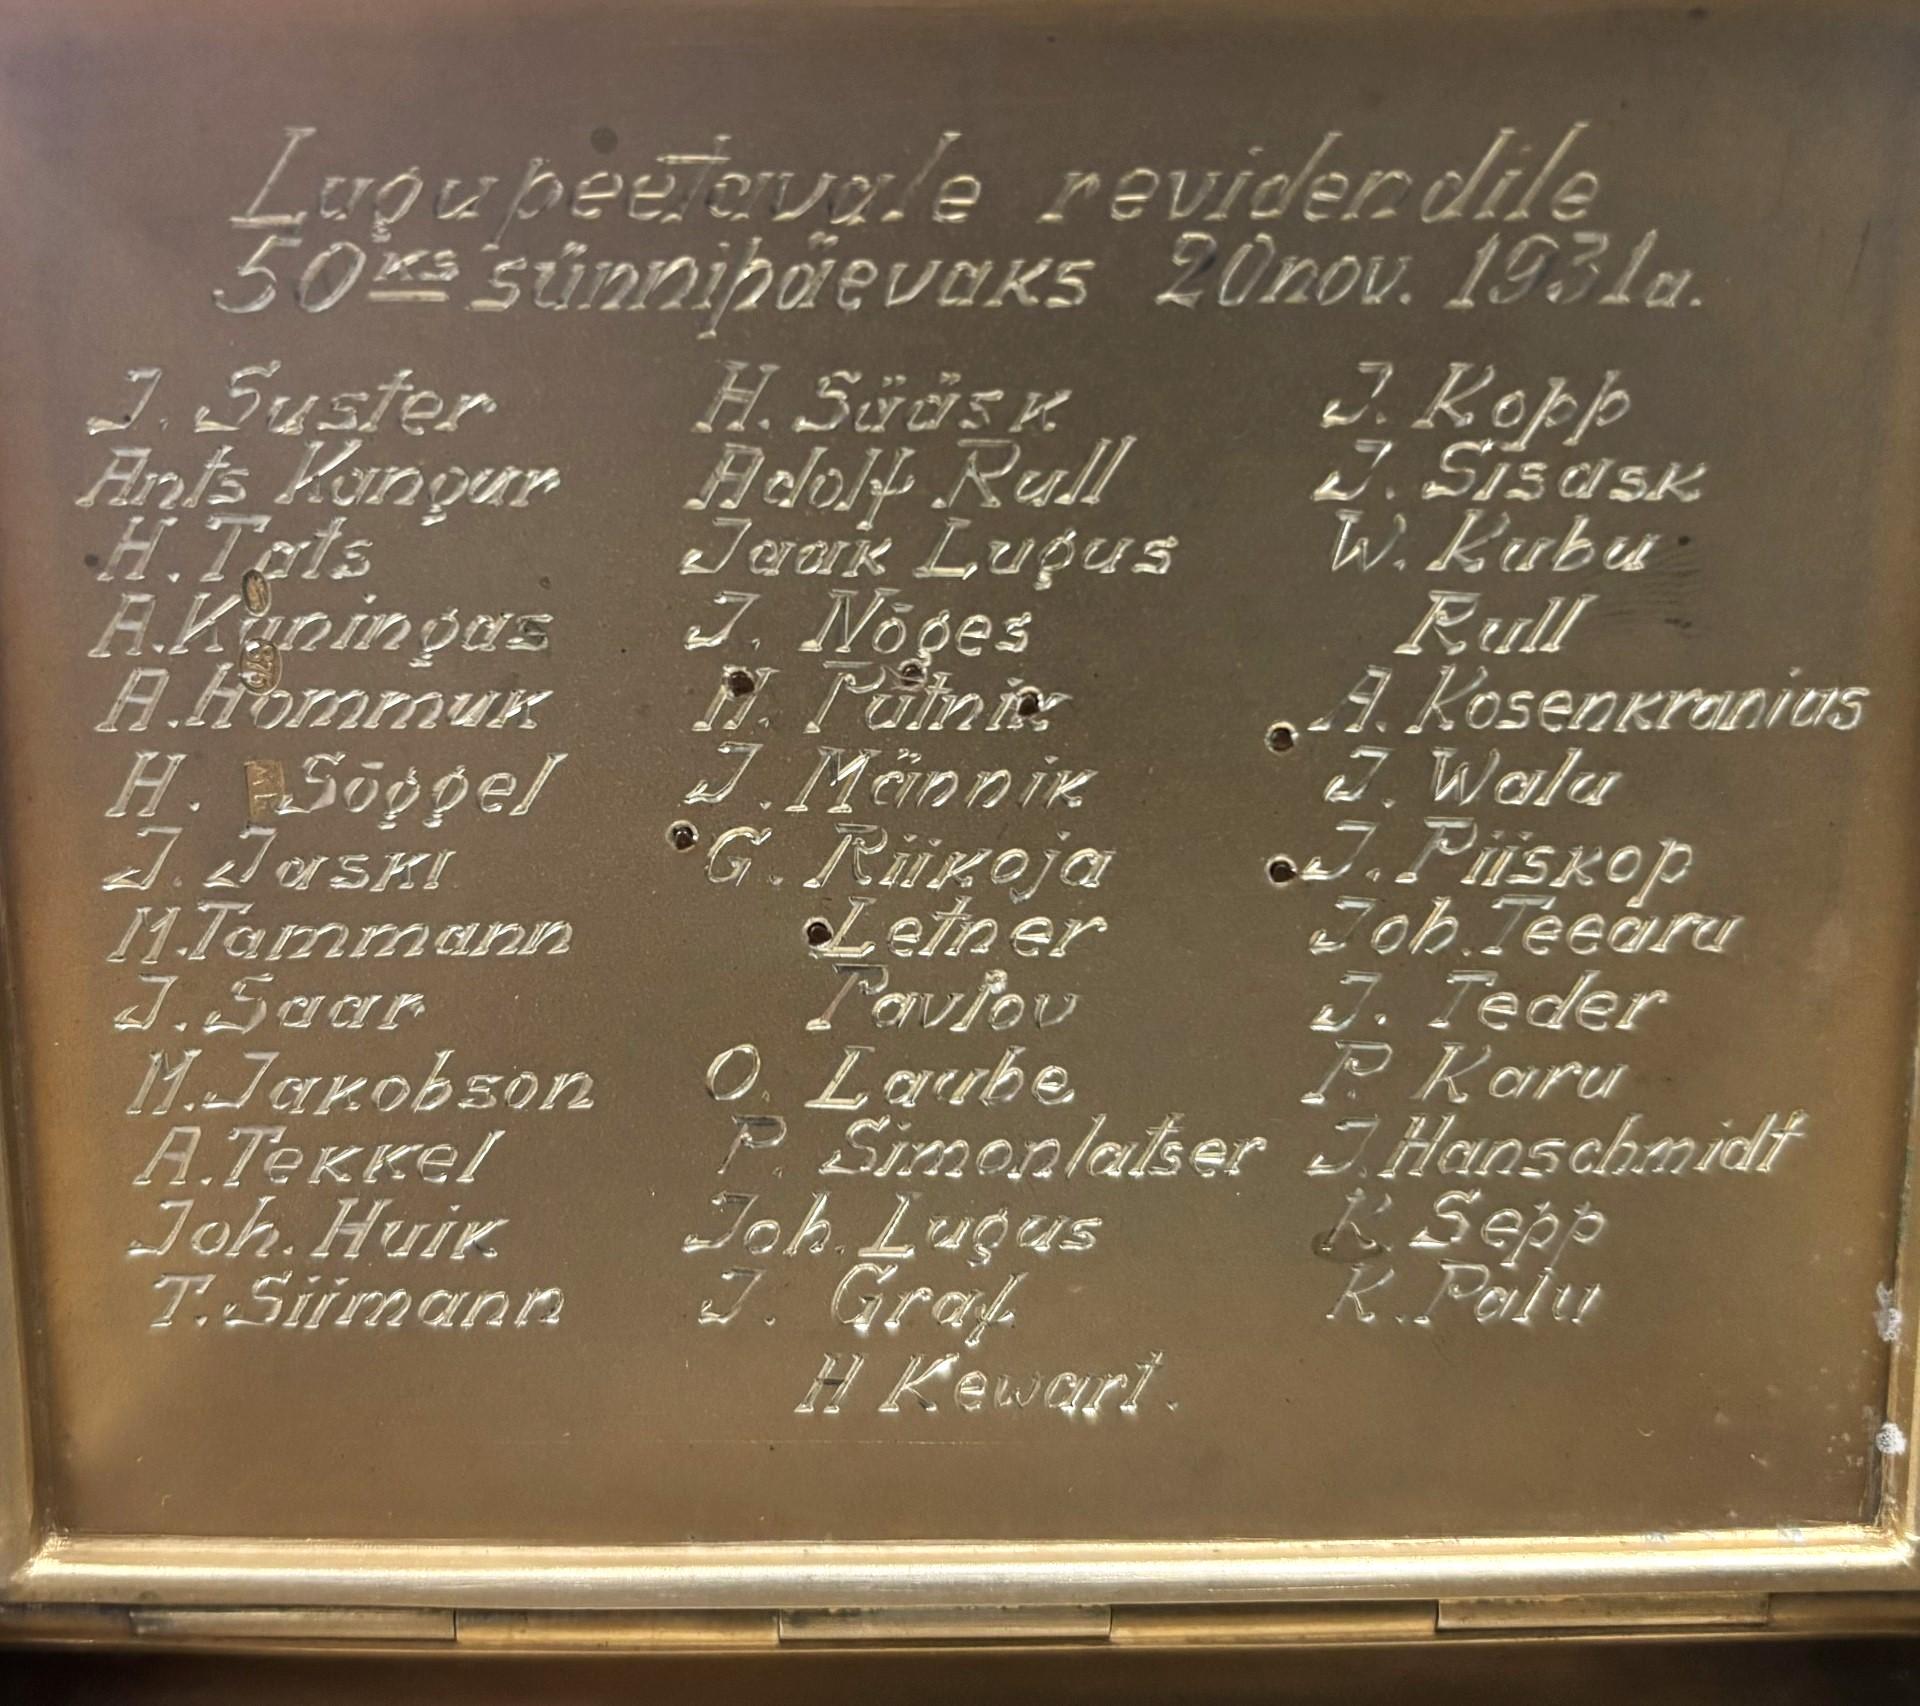 Lugupeetavale revidendile
50ks sünnipäevaks 20nov. 1931a.
J. Suster
Ants Kangur
H. Tats
A. Kuningas
A. Hommuk
H. Sõggel
J. Jaski
M. Tammann
J. Saar
M. Jakobson
A. Tekkel
Joh. Huik
T. Siimann
H. Sääsk
Adolf Rull
Jaak Lugus
J. Nõges
H. Pütnik
J. Männik
G. Riikoja
Letner
Pavlov
O. Laube
P. Simonlatser
Joh. Lugus
J. Graf
H Kewart.
J. Kopp
J. Sisask
W. Kubu
Rull
A. Kosenkranius
J. Walu
J. Piiskop
Joh. Teearu
J. Teder
P. Karu
J. Hanschmidt
K. Sepp
K. Palu